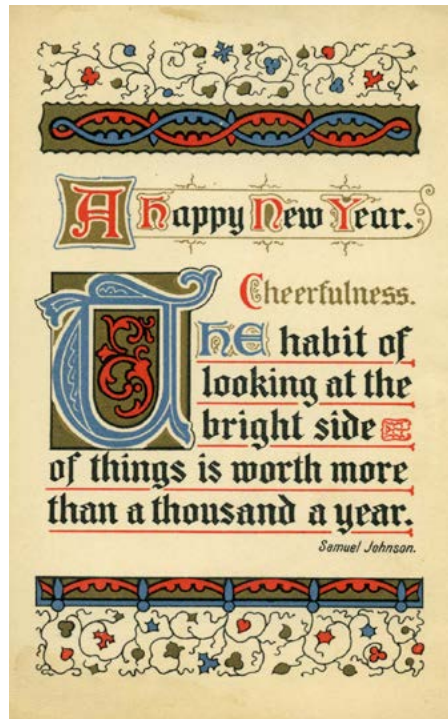 A Happy New Year.
Cheerfulness.
THE habit of
looking at the
bright side
of things is worth more
than a thousand a year.
Samuel Johnson.